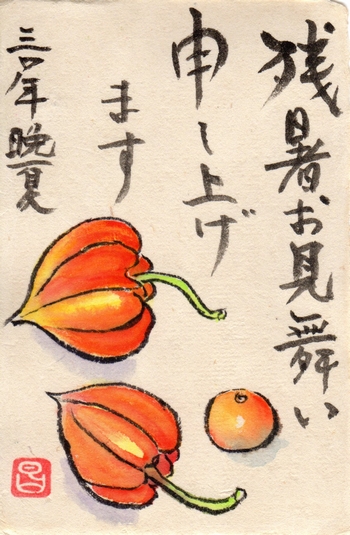 残暑お見舞い
申し上げ
ます
三〇年晩夏